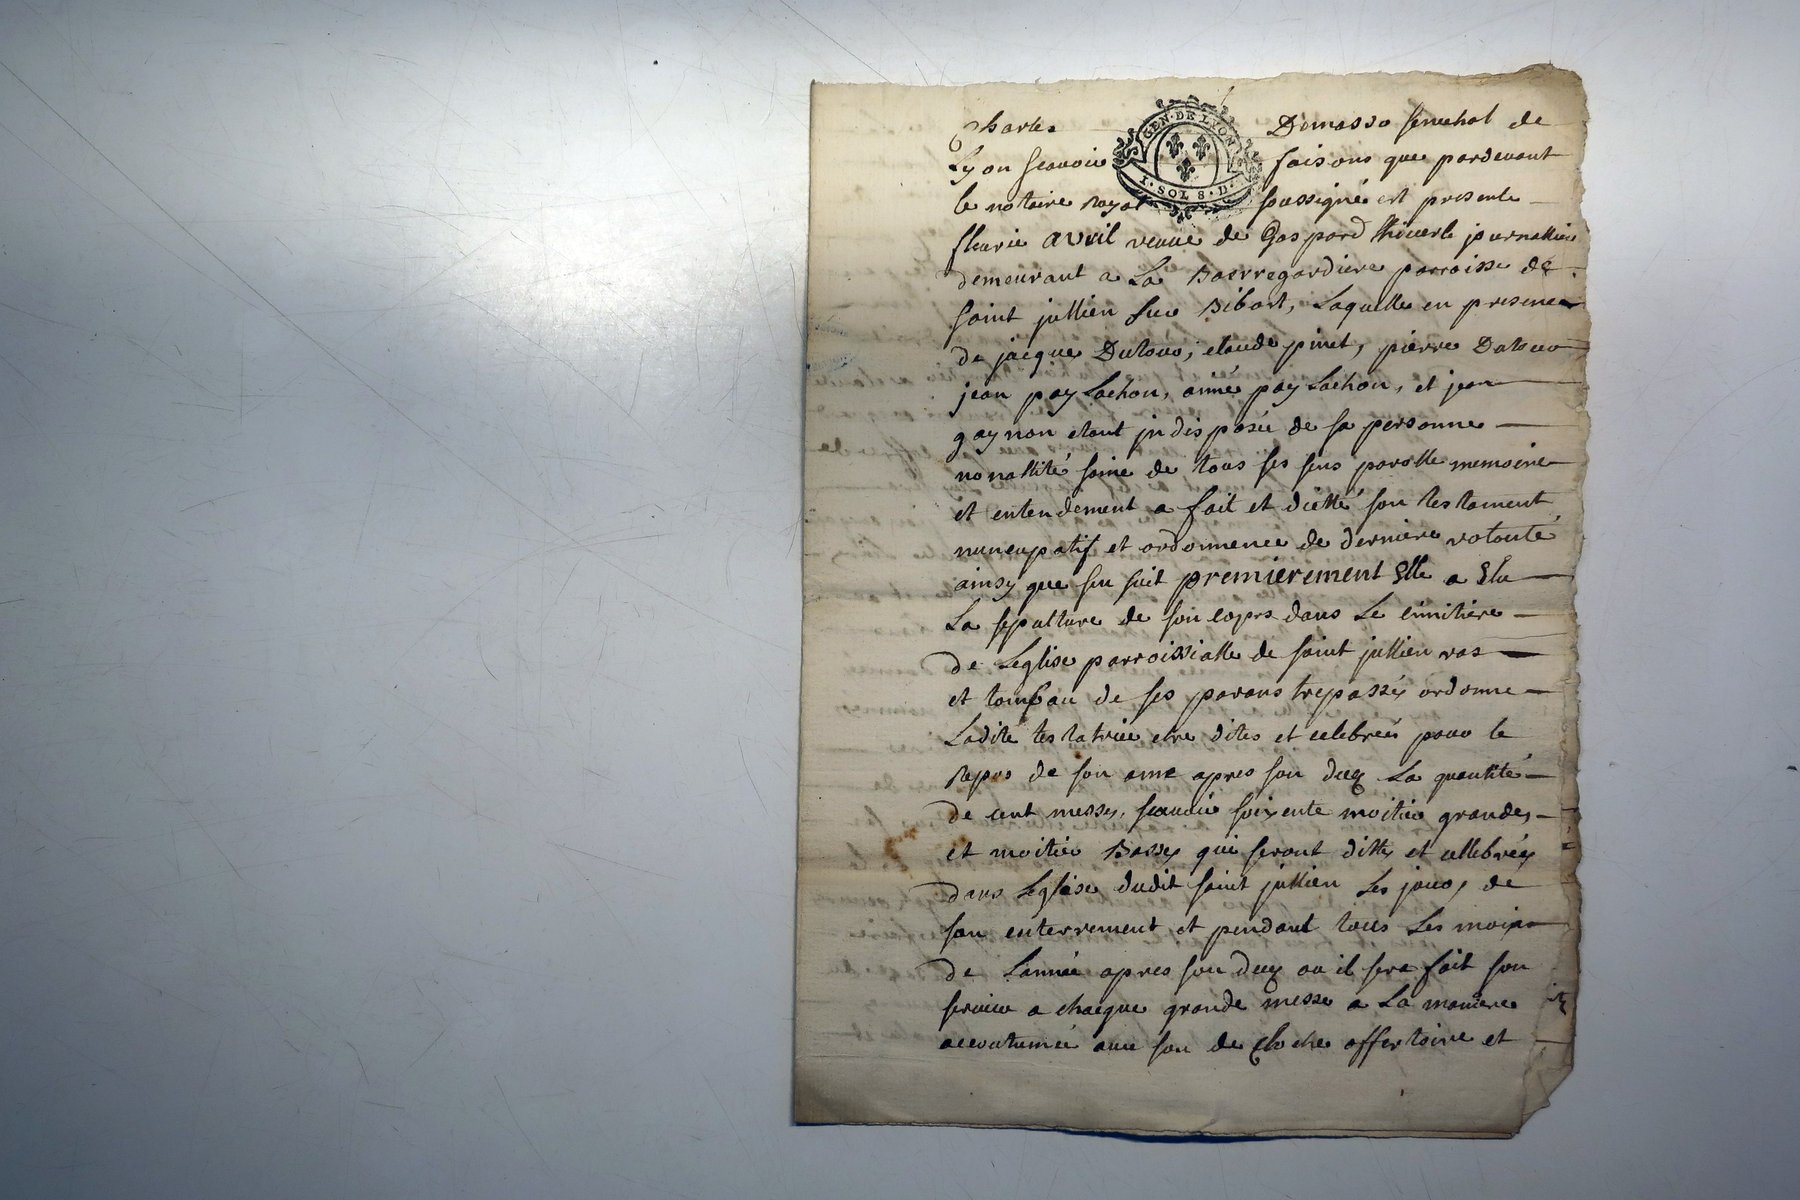 Charles Demasso senechal de
GEN·DE LYON
I·SOL 8·D·
Lyon scavoir faisons que pardevant
le notaire royal soussigné est presente
fleurie avril veuve de Gaspard thiuert journallier
demeurant a La Barregardiere parroisse de
saint jullien sur Bibost, Laquelle en presence
de jacque Dutour, claude pinet, pierre Dutour
jean pay Lachon, aimé pay Lachon, et jean
gaynon etant jndisposée de sa personne
nonallité saine de tous ses sens parolle memoire
et entendement a fait et dicté son testament
nuncupatif et ordonnence de derniere volonté
ainsy que sen suit premierement Elle a Elu
La sepulture de son corps dans Le cimitiere
de Leglise parroissialle de saint jullien vas
et tombau de ses parans trepassés ordonne
Ladite testatrice etre dites et celebreés pour le
repos de son ame apres son decez La quantité
de cent messes, scavoir soixente moitier grandes
et moitier Basses qui seront dittes et cellebreés
dans Leglise dudit saint jullien Les jours de
son enterrement et pendant tous Les moins
de Lannée apres son decez ou il sera fait son
service a chacque grande messe a La maniere
accoutumée avec son de Cloche offertoire et